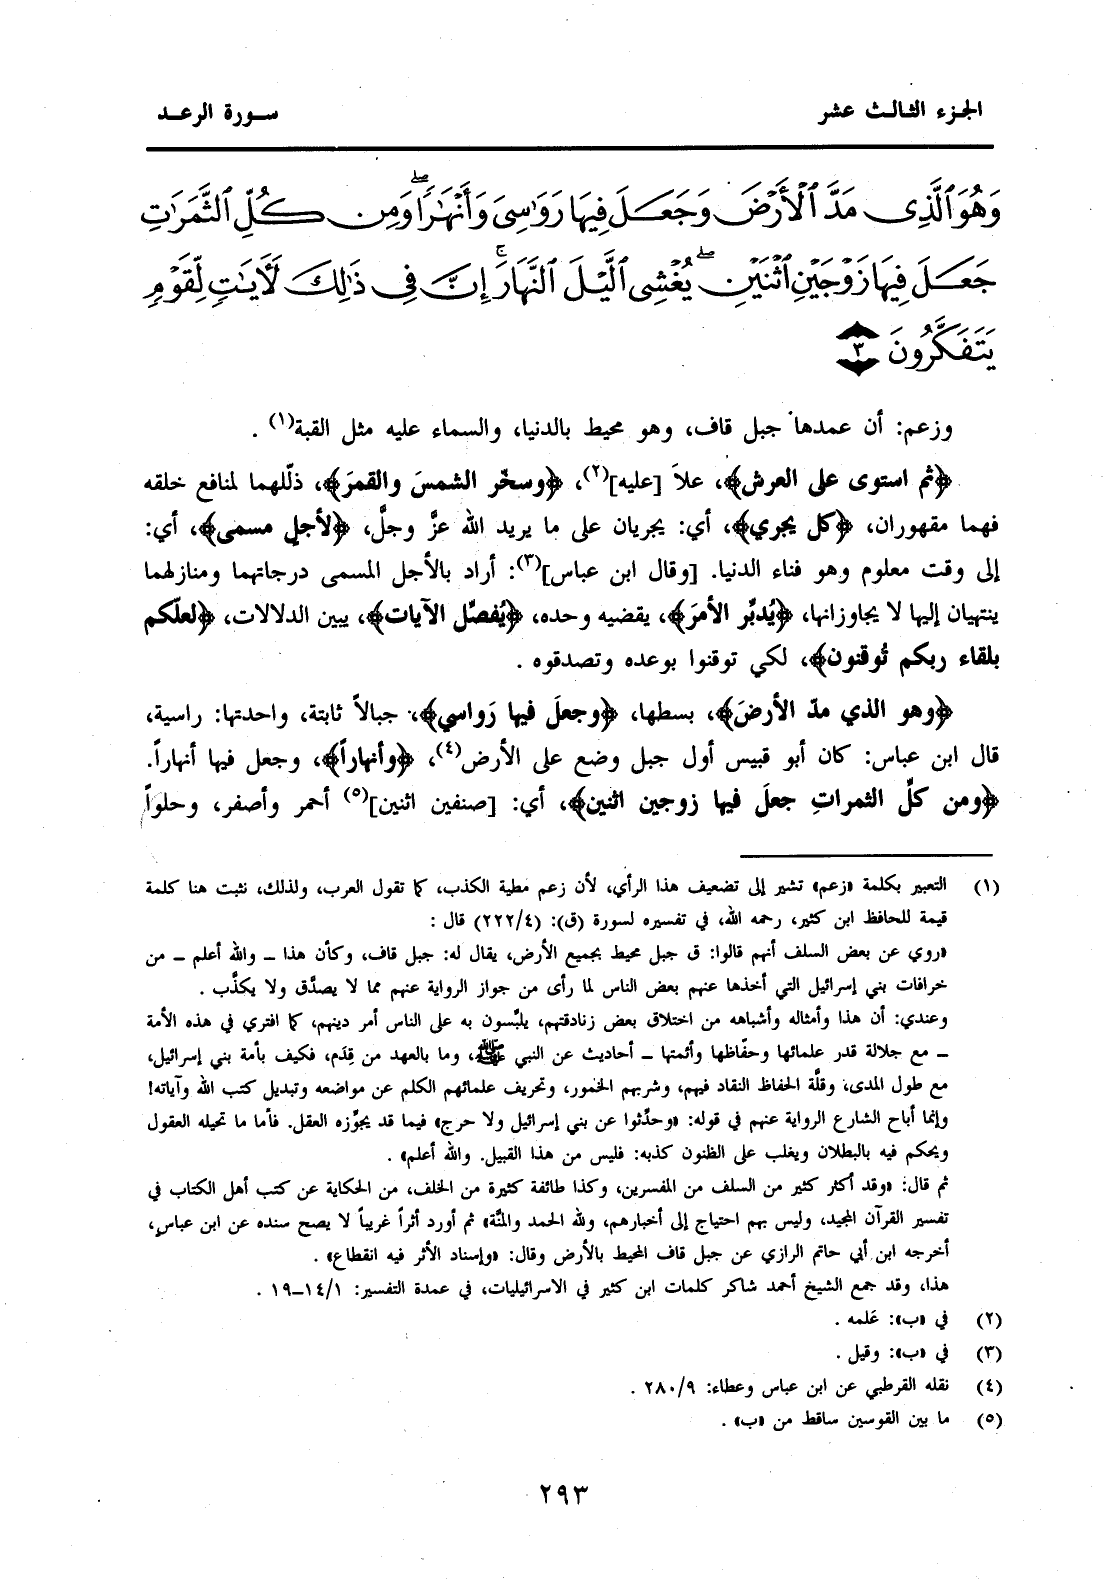 الجزء الثالث عشر
سورة الرعد
وَهُوَ ٱلَّذِى مَدَّ ٱلْأَرْضَ وَجَعَلَ فِيهَا رَوَٰسِىَ وَأَنْهَٰرًا ۖ وَمِن كُلِّ ٱلثَّمَرَٰتِ
جَعَلَ فِيهَا زَوْجَيْنِ ٱثْنَيْنِ ۖ يُغْشِى ٱلَّيْلَ ٱلنَّهَارَ ۚ إِنَّ فِى ذَٰلِكَ لَءَايَٰتٍ لِّقَوْمٍ
يَتَفَكَّرُونَ ٣
وزعم: أن عمدها جبل قاف، وهو محيط بالدنيا، والسماء عليه مثل القبة(١) .
﴿ثم استوى على العرش﴾، علاَ [عليه](٢)، ﴿وسخّر الشمسَ والقمرَ﴾، ذلّلهما لمنافع خلقه
فهما مقهوران، ﴿كل يجري﴾، أي: يجريان على ما يريد الله عزَّ وجلَّ، ﴿لأجلٍ مسمى﴾، أي:
إلى وقت معلوم وهو فناء الدنيا. [وقال ابن عباس](٣): أراد بالأجل المسمى درجاتهما ومنازلهما
ينتهيان إليها لا يجاوزانها، ﴿يُدبِّر الأمرَ﴾، يقضيه وحده، ﴿يُفصِّل الآيات﴾، يبين الدلالات، ﴿لعلّكم
بلقاء ربكم تُوقنون﴾، لكي توقنوا بوعده وتصدقوه .
﴿وهو الذي مدّ الأرضَ﴾، بسطها، ﴿وجعلَ فيها رَواسي﴾، جبالاً ثابتة، واحدتها: راسية،
قال ابن عباس: كان أبو قبيس أول جبل وضع على الأرض(٤)، ﴿وأنهاراً﴾، وجعل فيها أنهاراً.
﴿ومن كلِّ الثمراتِ جعلَ فيها زوجين اثنين﴾، أي: [صنفين اثنين](٥) أحمر وأصفر، وحلواً
(١) التعبير بكلمة «زعم» تشير إلى تضعيف هذا الرأي، لأن زعم مطية الكذب، كما تقول العرب، ولذلك، نثبت هنا كلمة
قيمة للحافظ ابن كثير، رحمه الله، في تفسيره لسورة (ق): (٢٢٢/٤) قال :
«روي عن بعض السلف أنهم قالوا: ق جبل محيط بجميع الأرض، يقال له: جبل قاف، وكأن هذا ــ والله أعلم ــ من
خرافات بني إسرائيل التي أخذها عنهم بعض الناس لما رأى من جواز الرواية عنهم مما لا يصدَّق ولا يكذَّب .
وعندي: أن هذا وأمثاله وأشباهه من اختلاق بعض زنادقتهم، يلبِّسون به على الناس أمر دينهم، كما افتري في هذه الأمة
ــ مع جلالة قدر علمائها وحفّاظها وأئمتها ــ أحاديث عن النبي ﷺ، وما بالعهد من قِدَم، فكيف بأمة بني إسرائيل،
مع طول المدى، وقلَّة الحفاظ النقاد فيهم، وشربهم الخمور، وتحريف علمائهم الكلم عن مواضعه وتبديل كتب الله وآياته!
وإنما أباح الشارع الرواية عنهم في قوله: «وحدِّثوا عن بني إسرائيل ولا حرج» فيما قد يجوِّزه العقل. فأما ما تحيله العقول
ويحكم فيه بالبطلان ويغلب على الظنون كذبه: فليس من هذا القبيل. والله أعلم» .
ثم قال: «وقد أكثر كثير من السلف من المفسرين، وكذا طائفة كثيرة من الخلف، من الحكاية عن كتب أهل الكتاب في
تفسير القرآن المجيد، وليس بهم احتياج إلى أخبارهم، ولله الحمد والمنَّة» ثم أورد أثراً غريباً لا يصح سنده عن ابن عباس،
أخرجه ابن أبي حاتم الرازي عن جبل قاف المحيط بالأرض وقال: «وإسناد الأثر فيه انقطاع» .
هذا، وقد جمع الشيخ أحمد شاكر كلمات ابن كثير في الاسرائيليات، في عمدة التفسير: ١٤/١ــ١٩ .
(٢) في «ب»: عَلمه .
(٣) في «ب»: وقيل .
(٤) نقله القرطبي عن ابن عباس وعطاء: ٢٨٠/٩ .
(٥) ما بين القوسين ساقط من «ب» .
٢٩٣